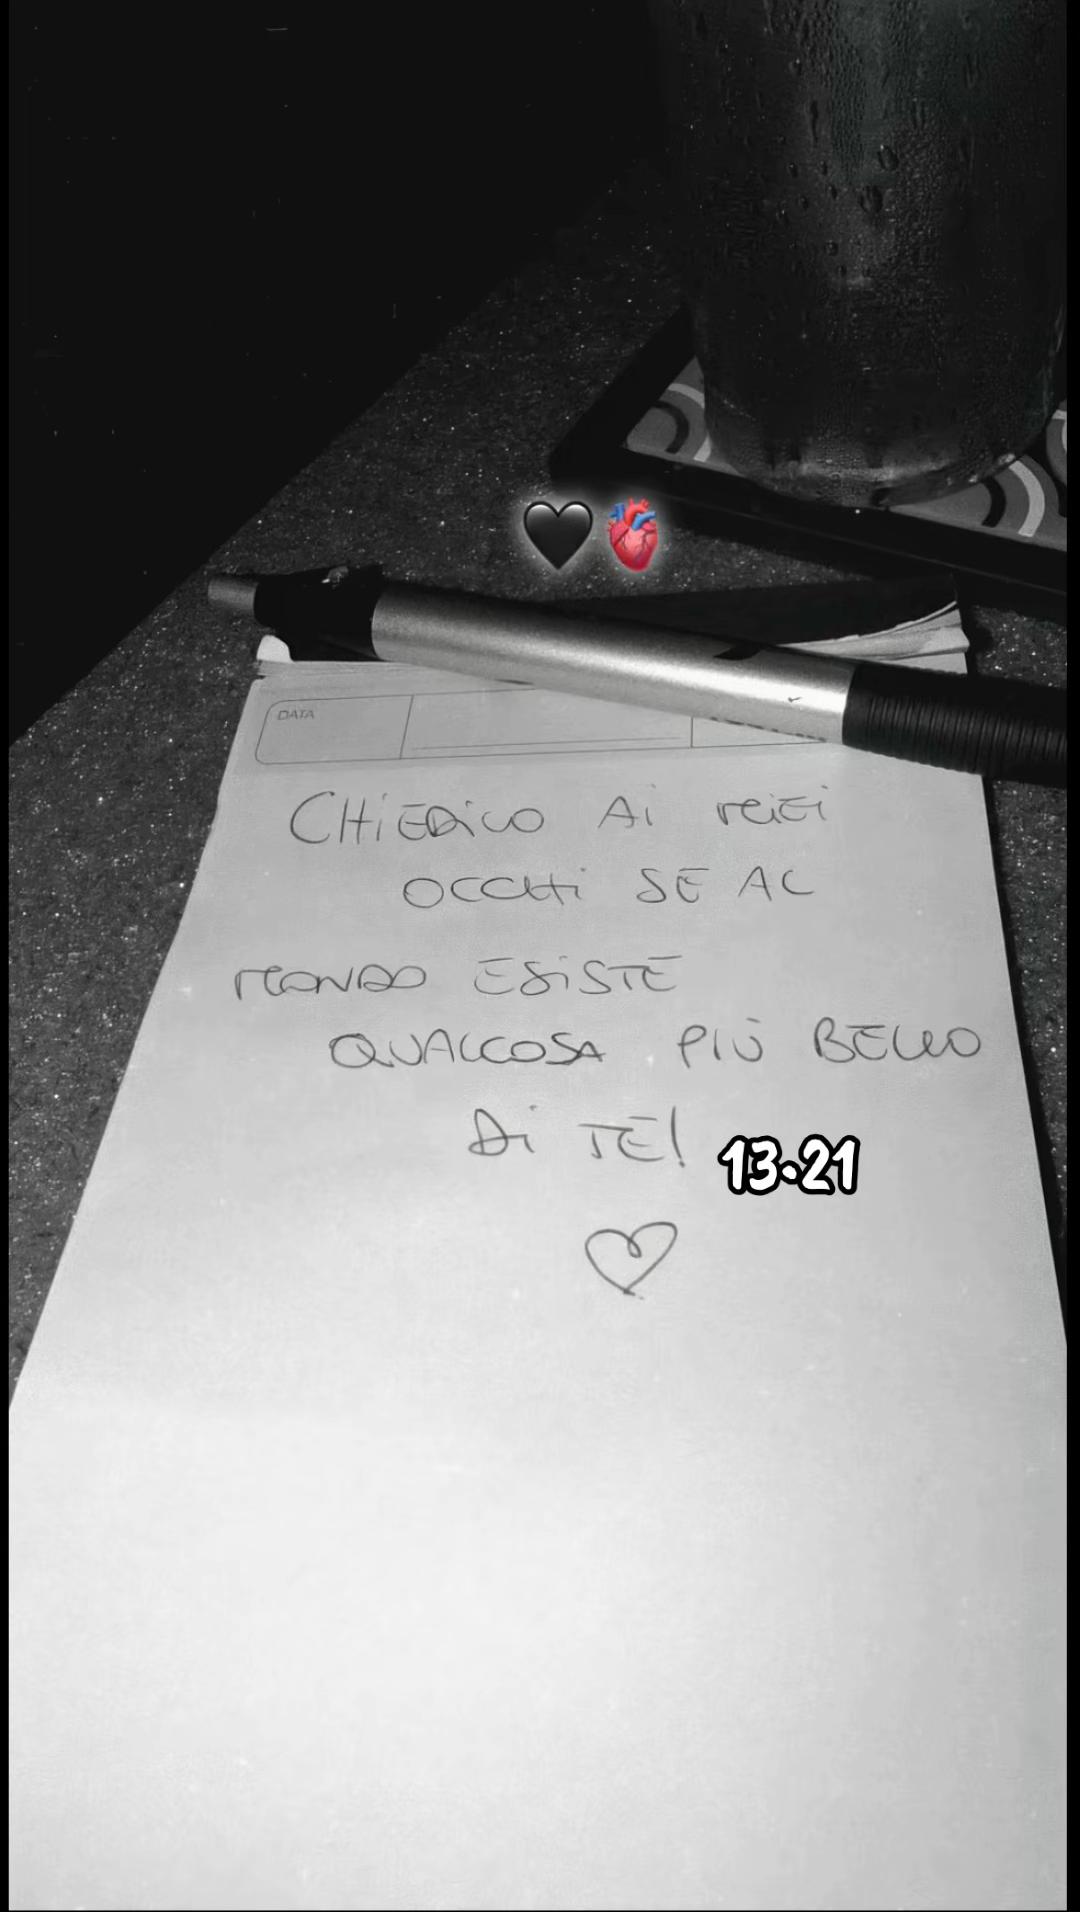 🖤🫀
DATA
CHiEDiLO Ai MiEi
OCCHi SE AL
MONDO ESiSTE
QUALCOSA PIÙ BELLO
Di TE! 13•21
♡